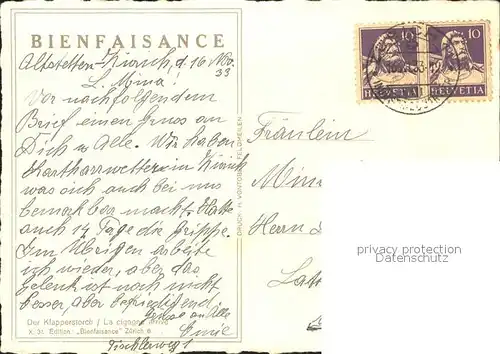 BIENFAISANCE
Altstetten-Zürich, d. 16 Nov.
33
L. Mina!
Vor nachfolgendem
Brief einen Gruss an
Dich u. Alle. Wir haben
Kartharrwetter in Zürich
was sich auch bei uns
bemerkbar macht. Hatte
auch 14 Tage die Grippe.
Im Übrigen arbeite
ich wieder, aber das
Gelenk ist noch nicht
besser, aber befriedigend
Gruss an Alle
Fräulein
Herrn
10 10
HELVETIA HELVETIA
privacy protection
Datenschutz
DRUCK: H. VONTOBEL, FELDMEILEN
Der Klapperstorch / La cigogne
X. 31. Edition: „Bienfaisance" Zürich 6
Tischlerweg 1